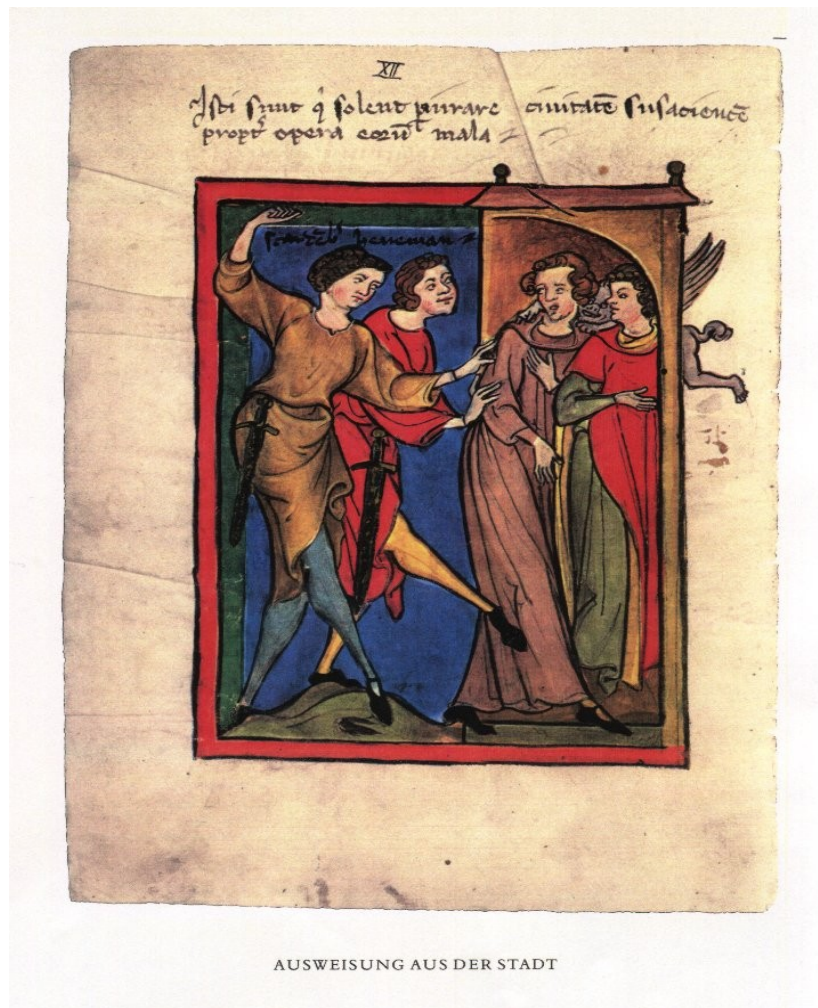 XII
Isti sunt q̇ solent ꝑiurare ciuitatē susaciencē
propt᾽ opera eorū mala
heneman
AUSWEISUNG AUS DER STADT